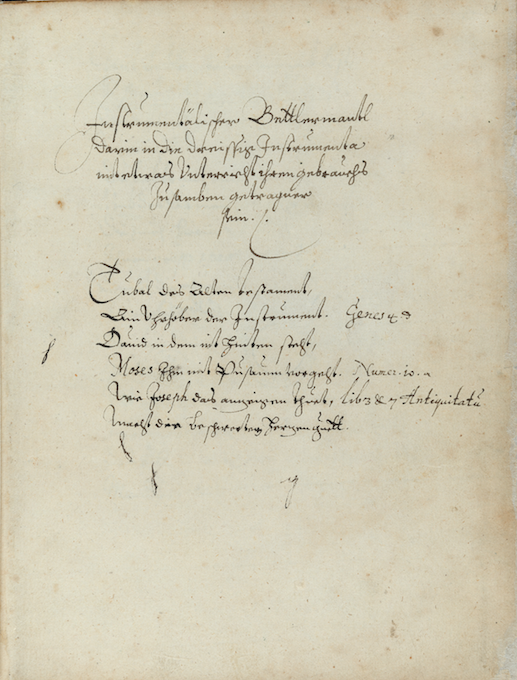 Instrumentälischer Bettlermantl
darin in die dreissig Instrumenta
mit etwas Unterricht ihren gebrauchs
Zusamben getragner
sein :/.
Tubal des Alten testament,
Ein Uhrhöber der Instrument. Genes 4
Dauid in dem nit hinten steht,
Moses Ihm mit Pusaum vorgeht. Numer. 10.
Wie Joseph das anzeigen thuet, lib 3 & 7 Antiquitatū
Macht der beschwerten herzen guett.